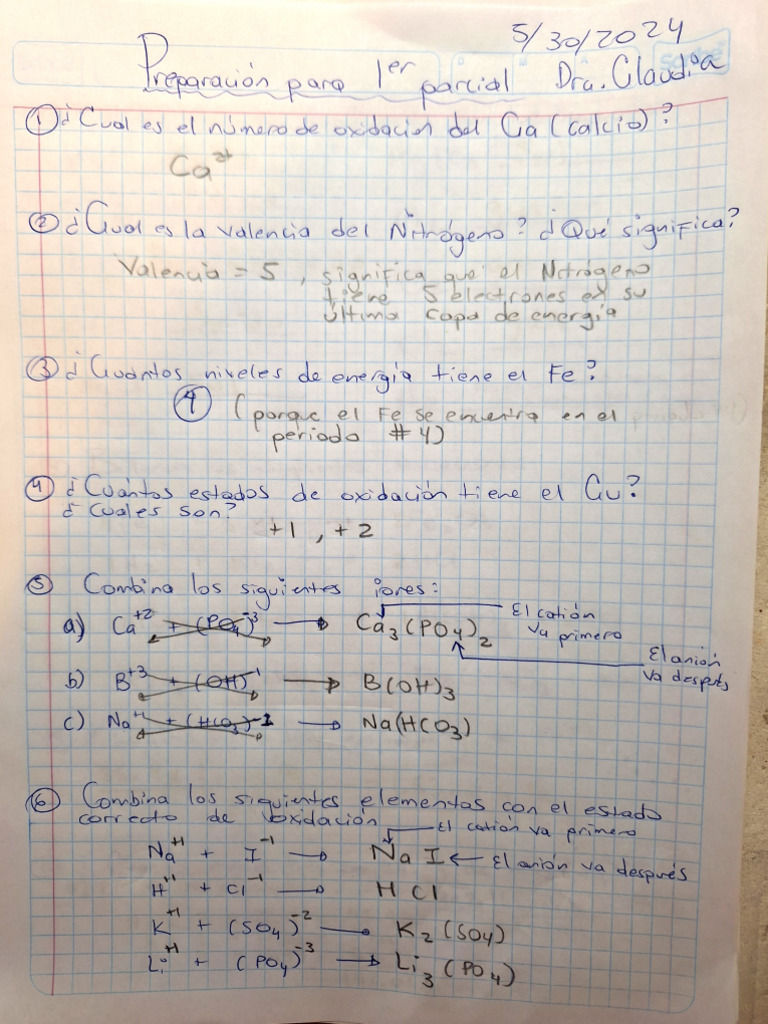 5/30/2024
Preparación para 1er parcial Dra. Claudia
① ¿Cual es el número de oxidación del Ca (calcio)?
Ca²⁺
② ¿Cual es la valencia del Nitrógeno? ¿Qué significa?
Valencia = 5, significa que el Nitrógeno
tiene 5 electrones en su
última capa de energía
③ ¿Cuántos niveles de energía tiene el Fe?
④ (porque el Fe se encuentra en el
periodo #4)
④ ¿Cuántos estados de oxidación tiene el Cu?
¿Cuales son?
+1, +2
⑤ Combina los siguientes iones:
a) Ca⁺² + (PO₄)⁻³ → Ca₃(PO₄)₂
El catión
va primero
El anión
va después
b) B⁺³ + (OH)⁻¹ → B(OH)₃
c) Na⁺¹ + (HCO₃)⁻¹ → Na(HCO₃)
⑥ Combina los siguientes elementos con el estado
correcto de oxidación
El catión va primero
Na⁺¹ + I⁻¹ → Na I ← El anión va después
H⁺¹ + Cl⁻¹ → H Cl
K⁺¹ + (SO₄)⁻² → K₂(SO₄)
Li⁺¹ + (PO₄)⁻³ → Li₃(PO₄)